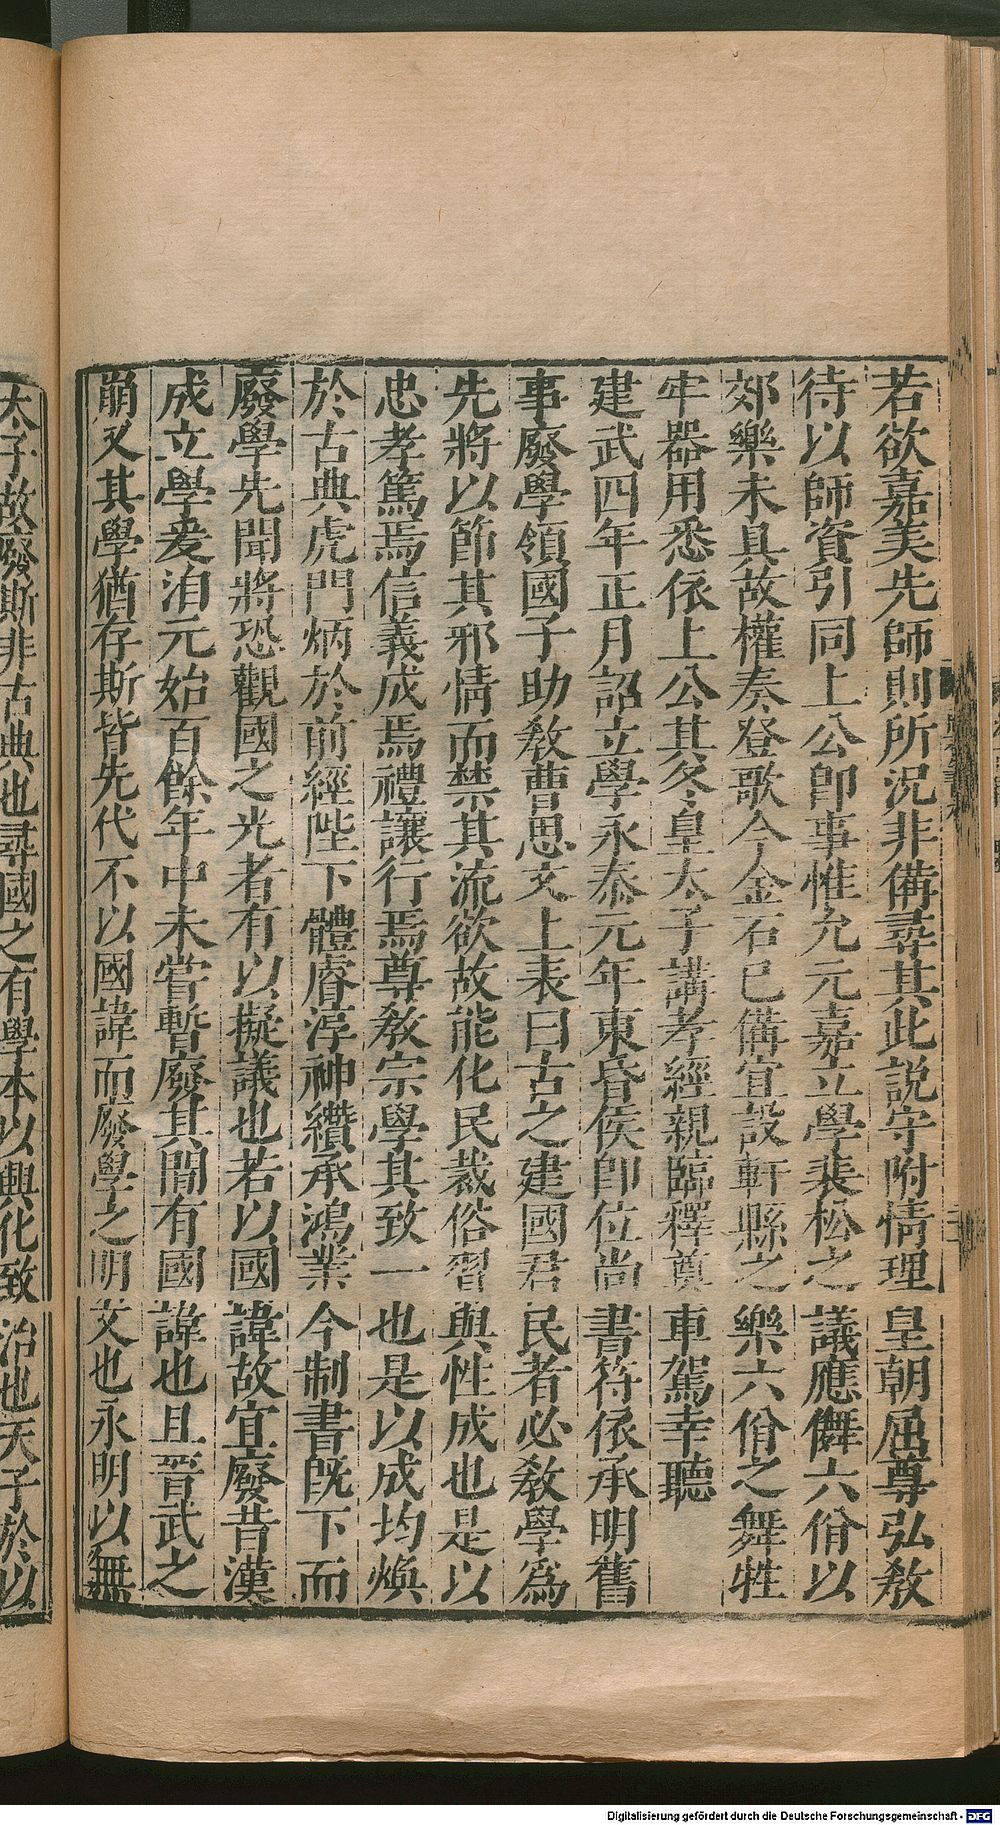 若欲嘉美先師則所況非備尋其此説守附情理皇朝屈尊弘教
待以師資引同上公即事惟允元嘉立學裴松之議應儛六佾以
郊樂未具故權奏登歌今金石已備宜設軒縣之樂六佾之舞牲
牢器用悉依上公其冬皇太子講孝經親臨釋奠車駕幸聽
建武四年正月詔立學永泰元年東昏侯即位尚書符依承明舊
事廢學領國子助教曹思文上表曰古之建國君民者必教學為
先將以節其邪情而禁其流欲故能化民裁俗習與性成也是以
忠孝篤焉信義成焉禮讓行焉尊教宗學其致一也是以成均煥
於古典虎門炳於前經陛下體睿淳神纘承鴻業今制書既下而
廢學先聞將恐觀國之光者有以擬議也若以國諱故宜廢昔漢
成立學爰洎元始百餘年中未嘗暫廢其間有國諱也且晉武之
崩又其學猶存斯皆先代不以國諱而廢學之明文也永明以無
太子故廢斯非古典也尋國之有學本以興化致治也天子於以
Digitalisierung gefördert durch die Deutsche Forschungsgemeinschaft - DFG